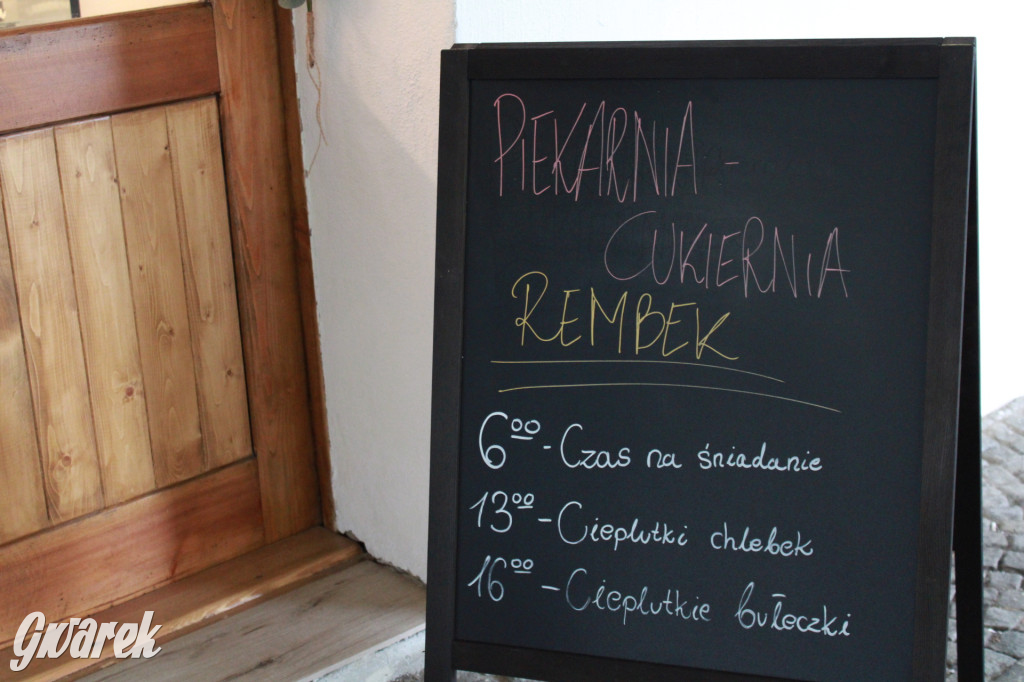 PIEKARNIA -
CUKIERNIA
REMBEK
6⁰⁰ - Czas na śniadanie
13⁰⁰ - Cieplutki chlebek
16⁰⁰ - Cieplutkie bułeczki
Gwarek